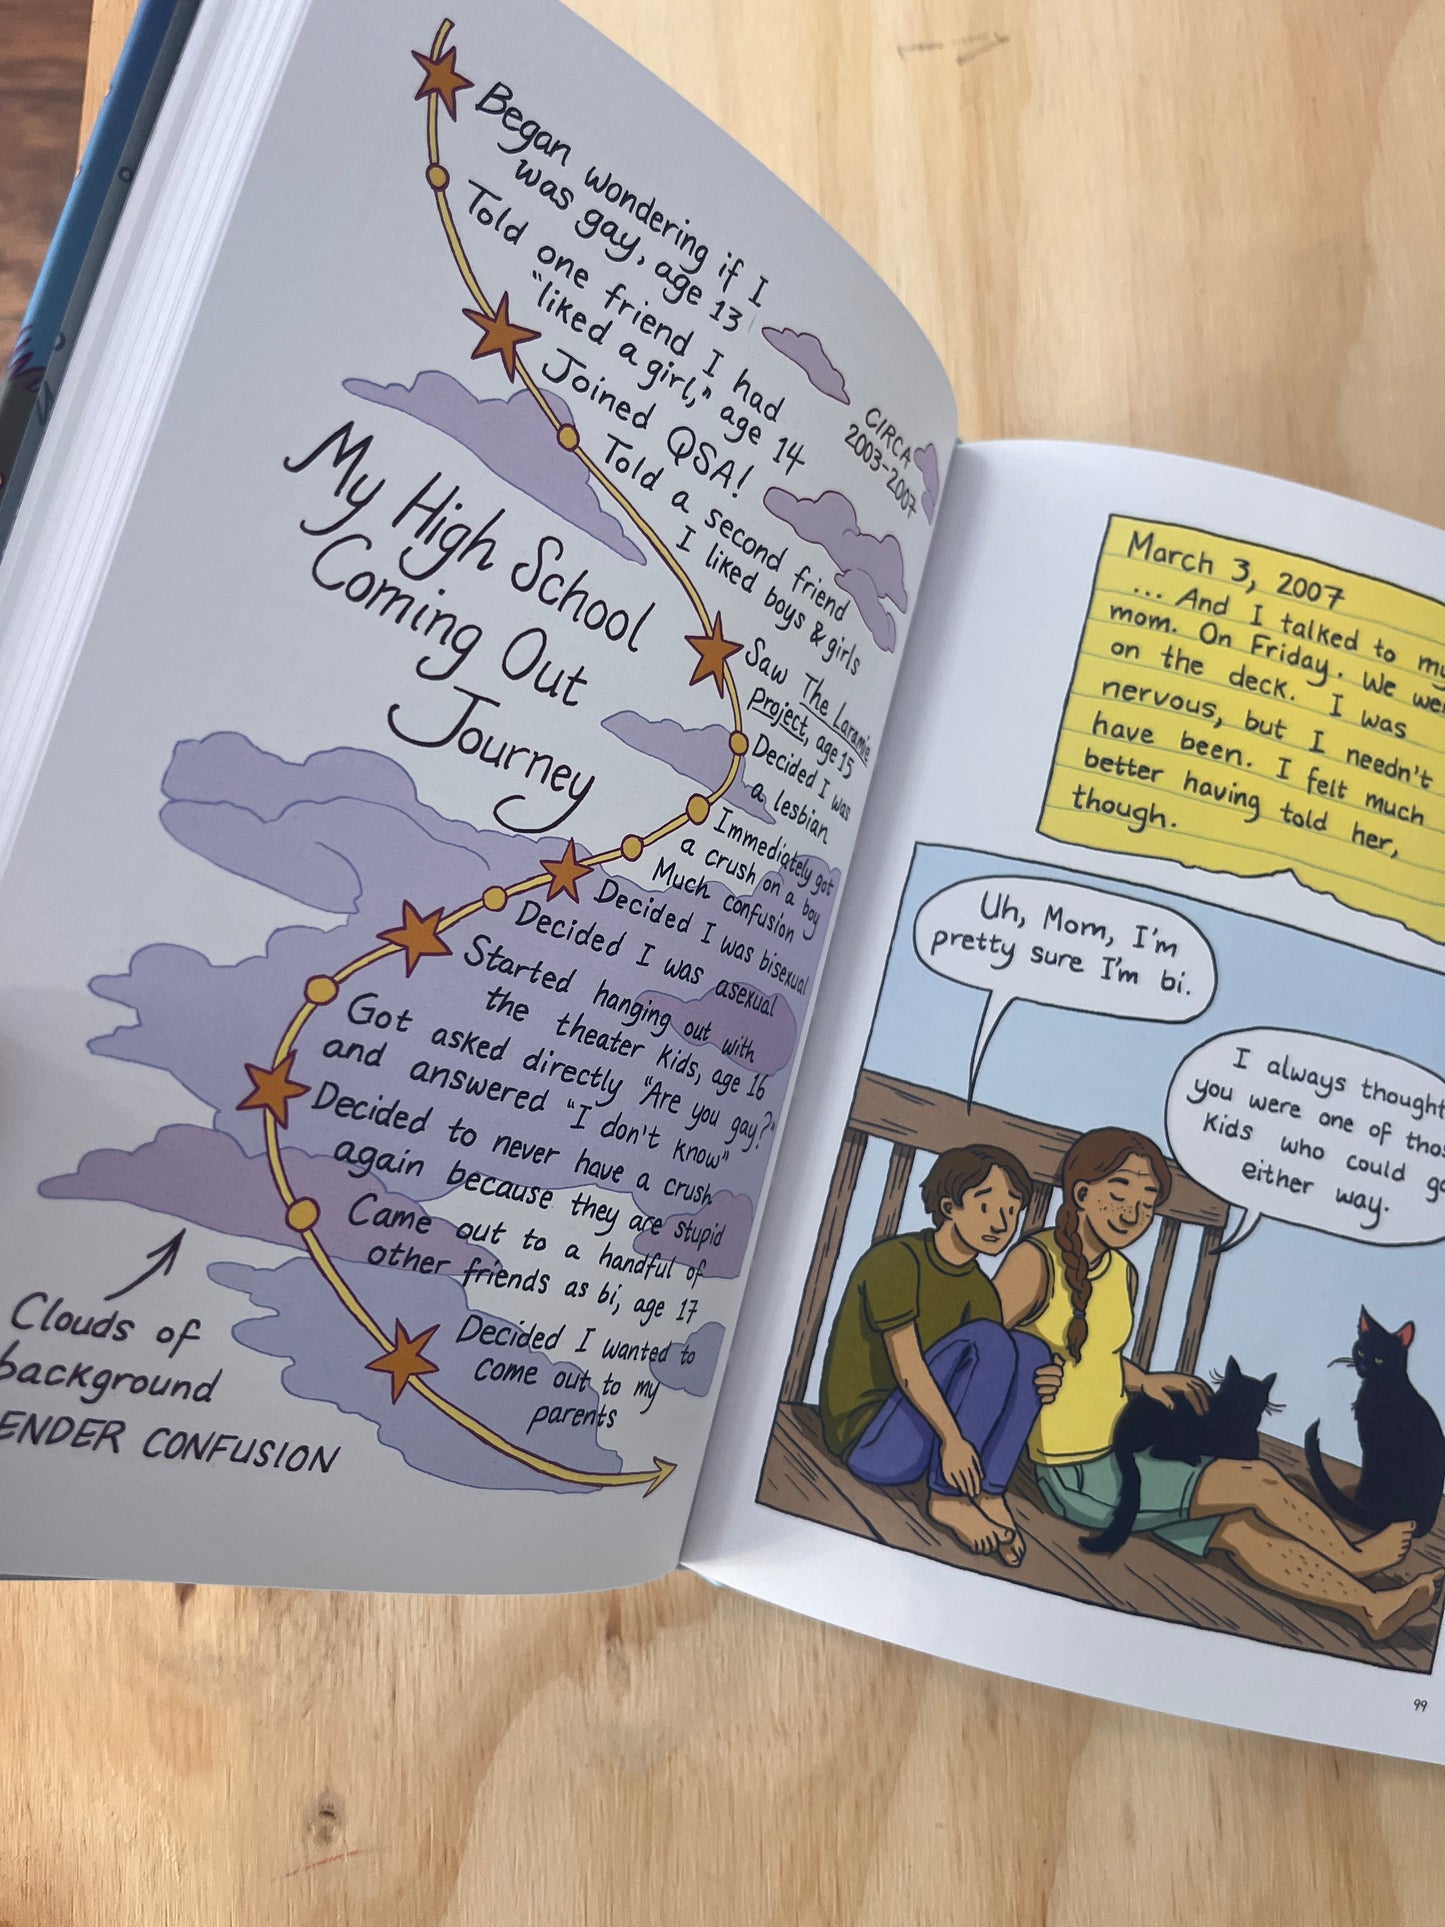 Began wondering if I
was gay, age 13
Told one friend I had
"liked a girl," age 14
Joined QSA!
Told a second friend
I liked boys & girls
CIRCA
2003-2007
My High School
Coming Out
Journey
Saw The Laramie
Project, age 15
Decided I was
a lesbian
Immediately got
a crush on a boy
Much confusion
Decided I was bisexual
Decided I was asexual
Started hanging out with
the theater kids, age 16
Got asked directly "Are you gay?"
and answered "I don't know"
Decided to never have a crush
again because they are stupid
Came out to a handful of
other friends as bi, age 17
Decided I wanted to
come out to my
parents
Clouds of
background
ENDER CONFUSION
March 3, 2007
... And I talked to my
mom. On Friday. We wer
on the deck. I was
nervous, but I needn't
have been. I felt much
better having told her,
though.
Uh, Mom, I'm
pretty sure I'm bi.
I always thought
you were one of thos
kids who could go
either way.
99